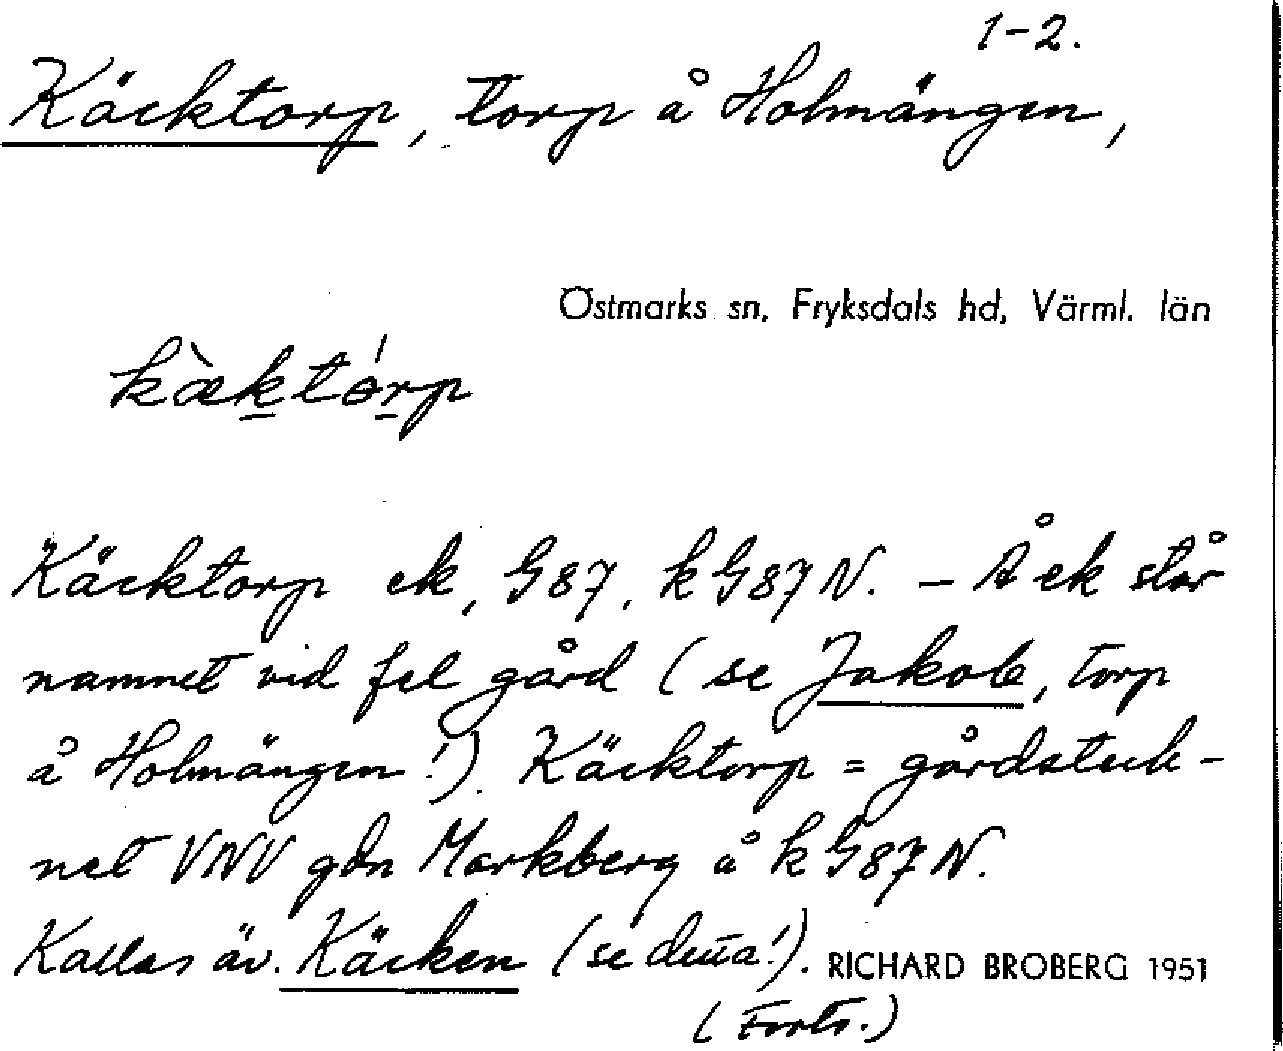 1-2.
Käcktorp, torp å Holmängen,
Östmarks sn, Fryksdals hd, Värml. län
kæ̀którp
Käcktorp ek, G87, kG87N. – Å ek står
namnet vid fel gård (se Jakob, torp
å Holmängen!). Käcktorp = gårdsteck-
net VNV gdn Markberg å kG87N.
Kallas äv. Käcken (se detta!). RICHARD BROBERG 1951
(Forts.)